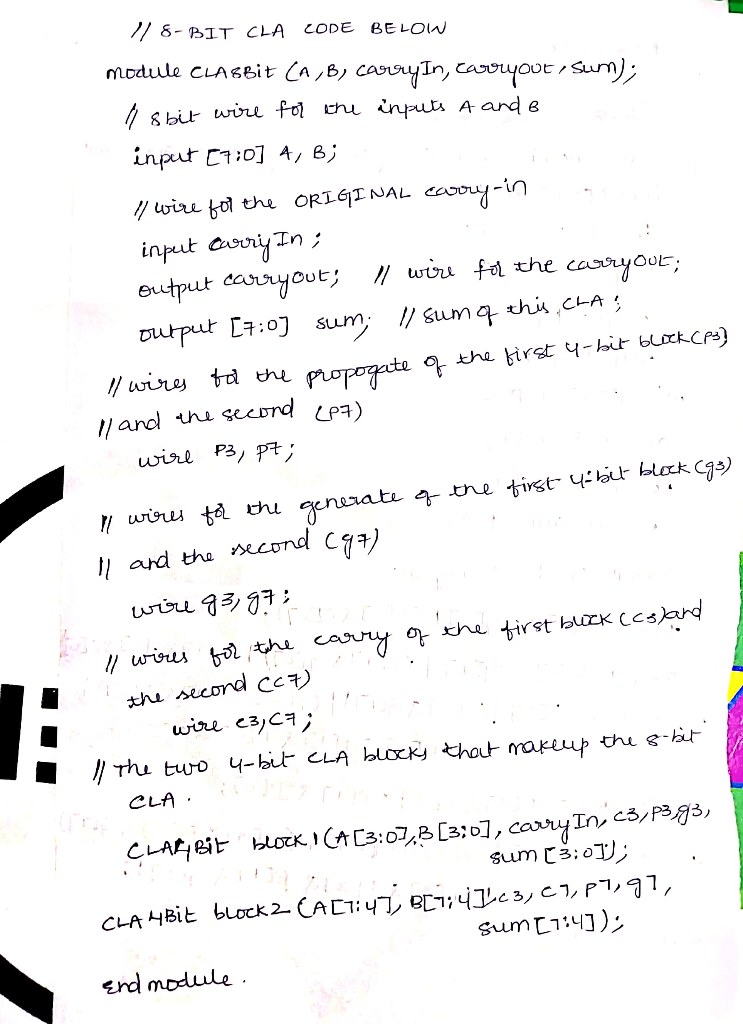 // 8-BIT CLA CODE BELOW
module CLA8Bit (A,B, carryIn, carryout, sum);
// 8bit wire for the inputs A and B
input [7:0] A, B;
// wire for the ORIGINAL carry-in
input carryIn;
output carryout; // wire for the carryout;
output [7:0] sum; // sum of this CLA;
// wires for the propogate of the first 4-bit block (p3)
// and the second (p7)
wire P3, P7;
// wires for the generate of the first 4-bit block (g3)
// and the second (g7)
wire g3, g7;
// wires for the carry of the first block (c3) and
the second (c7)
wire c3, c7;
// The two 4-bit CLA blocks that makeup the 8-bit
CLA.
CLA4Bit block1 (A[3:0], B[3:0], carryIn, c3, p3, g3,
sum[3:0]);
CLA4Bit block2 (A[7:4], B[7:4], c3, c7, p7, g7,
sum[7:4]);
End module.